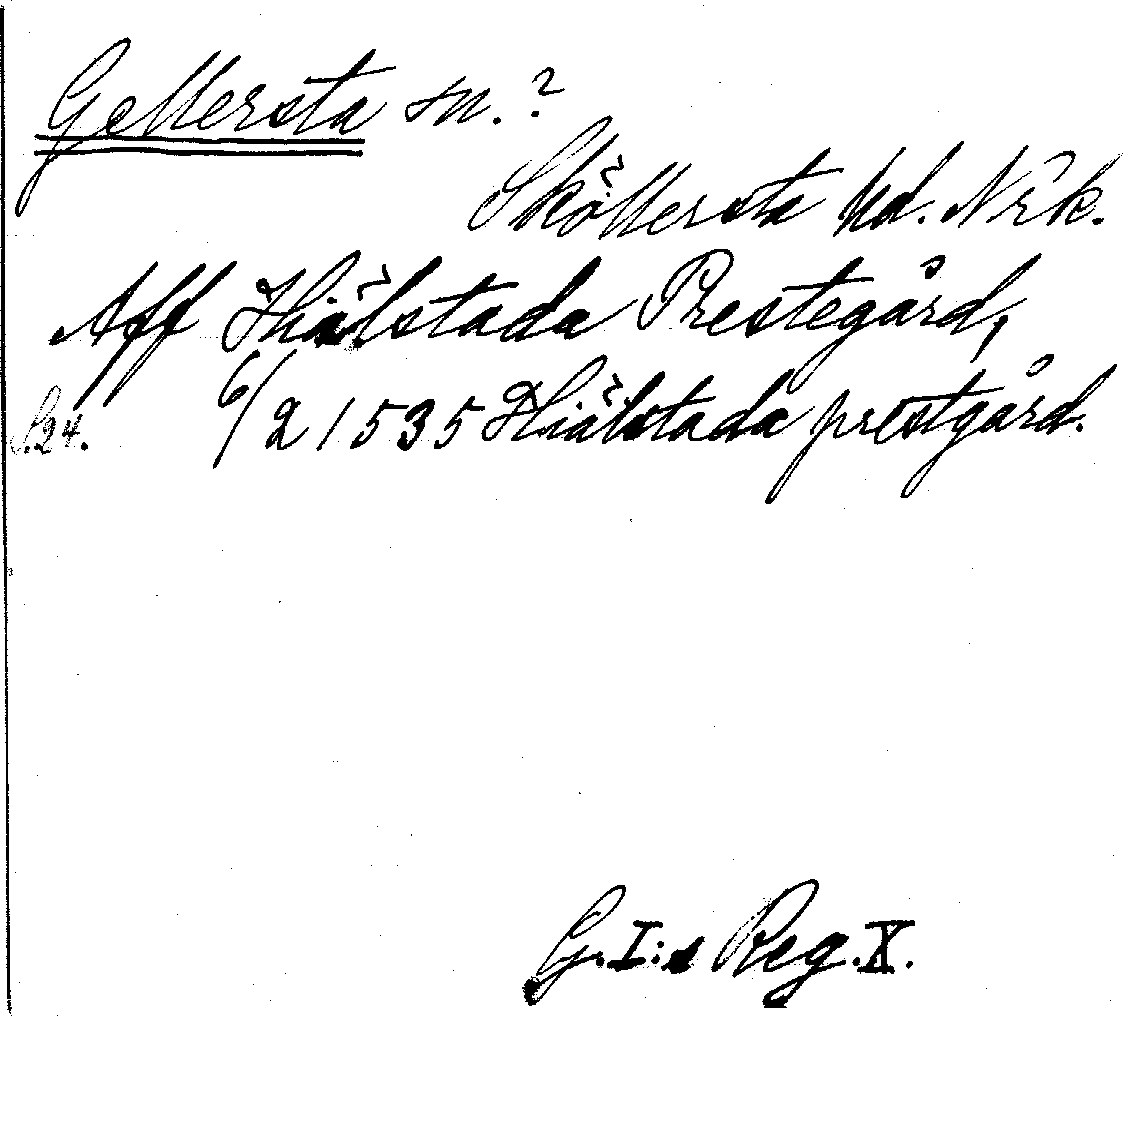 Gellersta sn.?
Sköllersta hd. Närk.
Aff Hiälstada Prestegård,
S.24. 6/2 1535 Hiälstada prestgård.
G.I:s Reg.X.